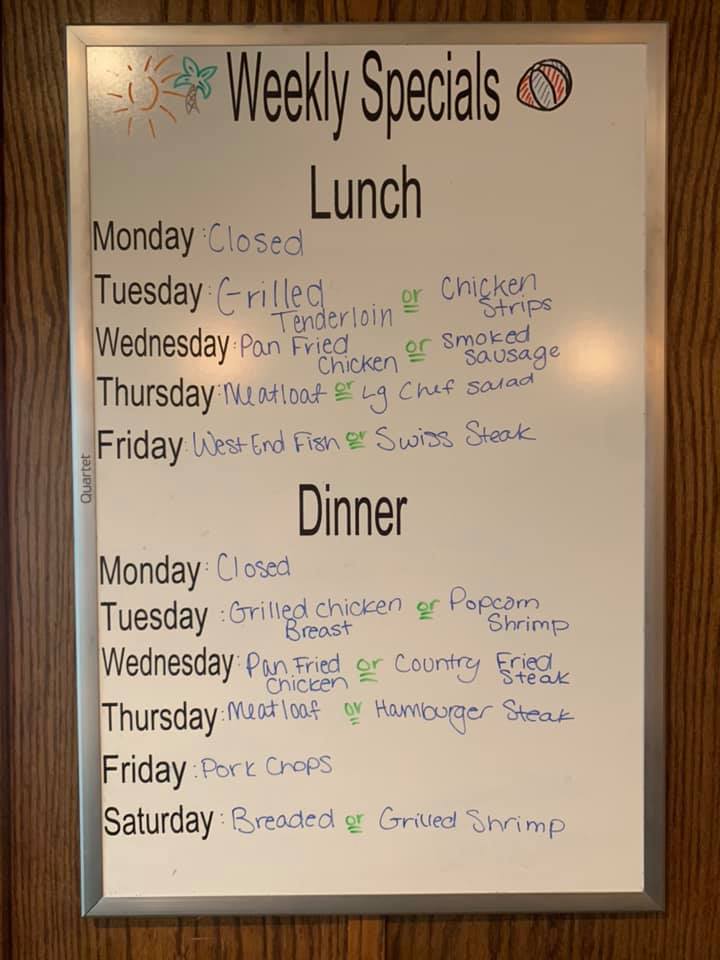 Weekly Specials
Lunch
Monday : Closed
Tuesday : Grilled Tenderloin or Chicken Strips
Wednesday : Pan Fried Chicken or Smoked Sausage
Thursday : Meatloaf or Lg Chef Salad
Friday : West End Fish or Swiss Steak
Quartet
Dinner
Monday : Closed
Tuesday : Grilled chicken Breast or Popcorn Shrimp
Wednesday : Pan Fried Chicken or Country Fried Steak
Thursday : Meatloaf or Hamburger Steak
Friday : Pork Chops
Saturday : Breaded or Grilled Shrimp